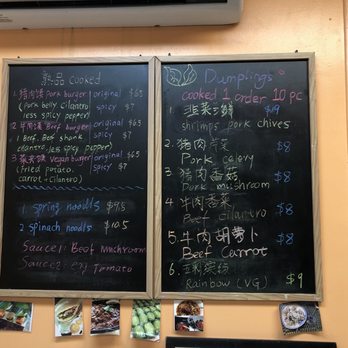 熟品 cooked
1. 猪肉馍 Pork burger original $6.5
(pork belly cilantro spicy $7
less spicy pepper)
2. 牛肉馍 Beef burger original $6.5
1. Beef, Beef shank spicy $7
cilantro, less spicy pepper)
3 蔬菜馍 vegan burger original $6.5
(fried potato. spicy $7
carrot + cilantro)
1 spring noodls $9.5
2 spinach noodls $10.5
Sauce1: Beef Mushroom
Sauce2: egg Tomato
Dumplings
cooked 1 order 10 pc
1. 韭菜三鲜 $9
shrimps pork chives
2. 猪肉芹菜 $8
Pork celery
3 猪肉香菇 $8
Pork mushroom
4 牛肉香菜 $8
Beef cilantro
5. 牛肉胡萝卜 $8
Beef Carrot
6.
Rainbow (VG) $9